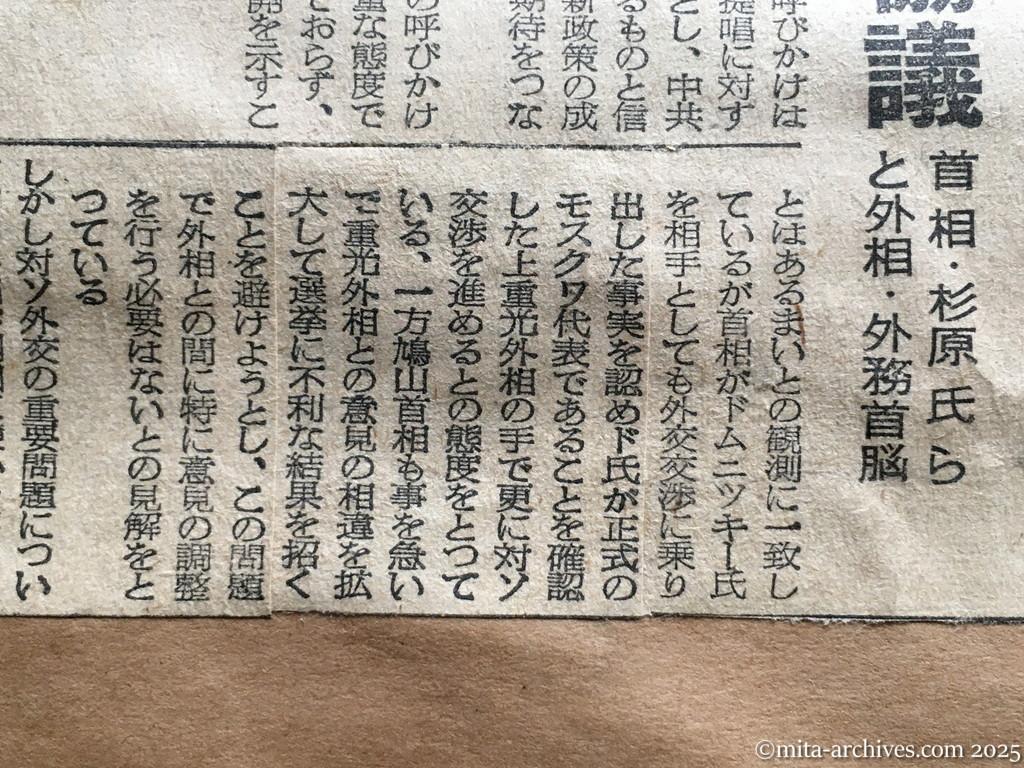 協議
首相・杉原氏ら
と外相・外務首脳
呼びかけは
提唱に対す
とし、中共
るものと信
新政策の成
期待をつな
の呼びかけ
重な態度で
ておらず、
開を示すこ
とはあるまいとの観測に一致し
ているが首相がドムニツキー氏
を相手としても外交交渉に乗り
出した事実を認めド氏が正式の
モスクワ代表であることを確認
した上重光外相の手で更に対ソ
交渉を進めるとの態度をとつて
いる、一方鳩山首相も事を急い
で重光外相との意見の相違を拡
大して選挙に不利な結果を招く
ことを避けようとし、この問題
で外相との間に特に意見の調整
を行う必要はないとの見解をと
つている
しかし対ソ外交の重要問題につい
©mita-archives.com 2025